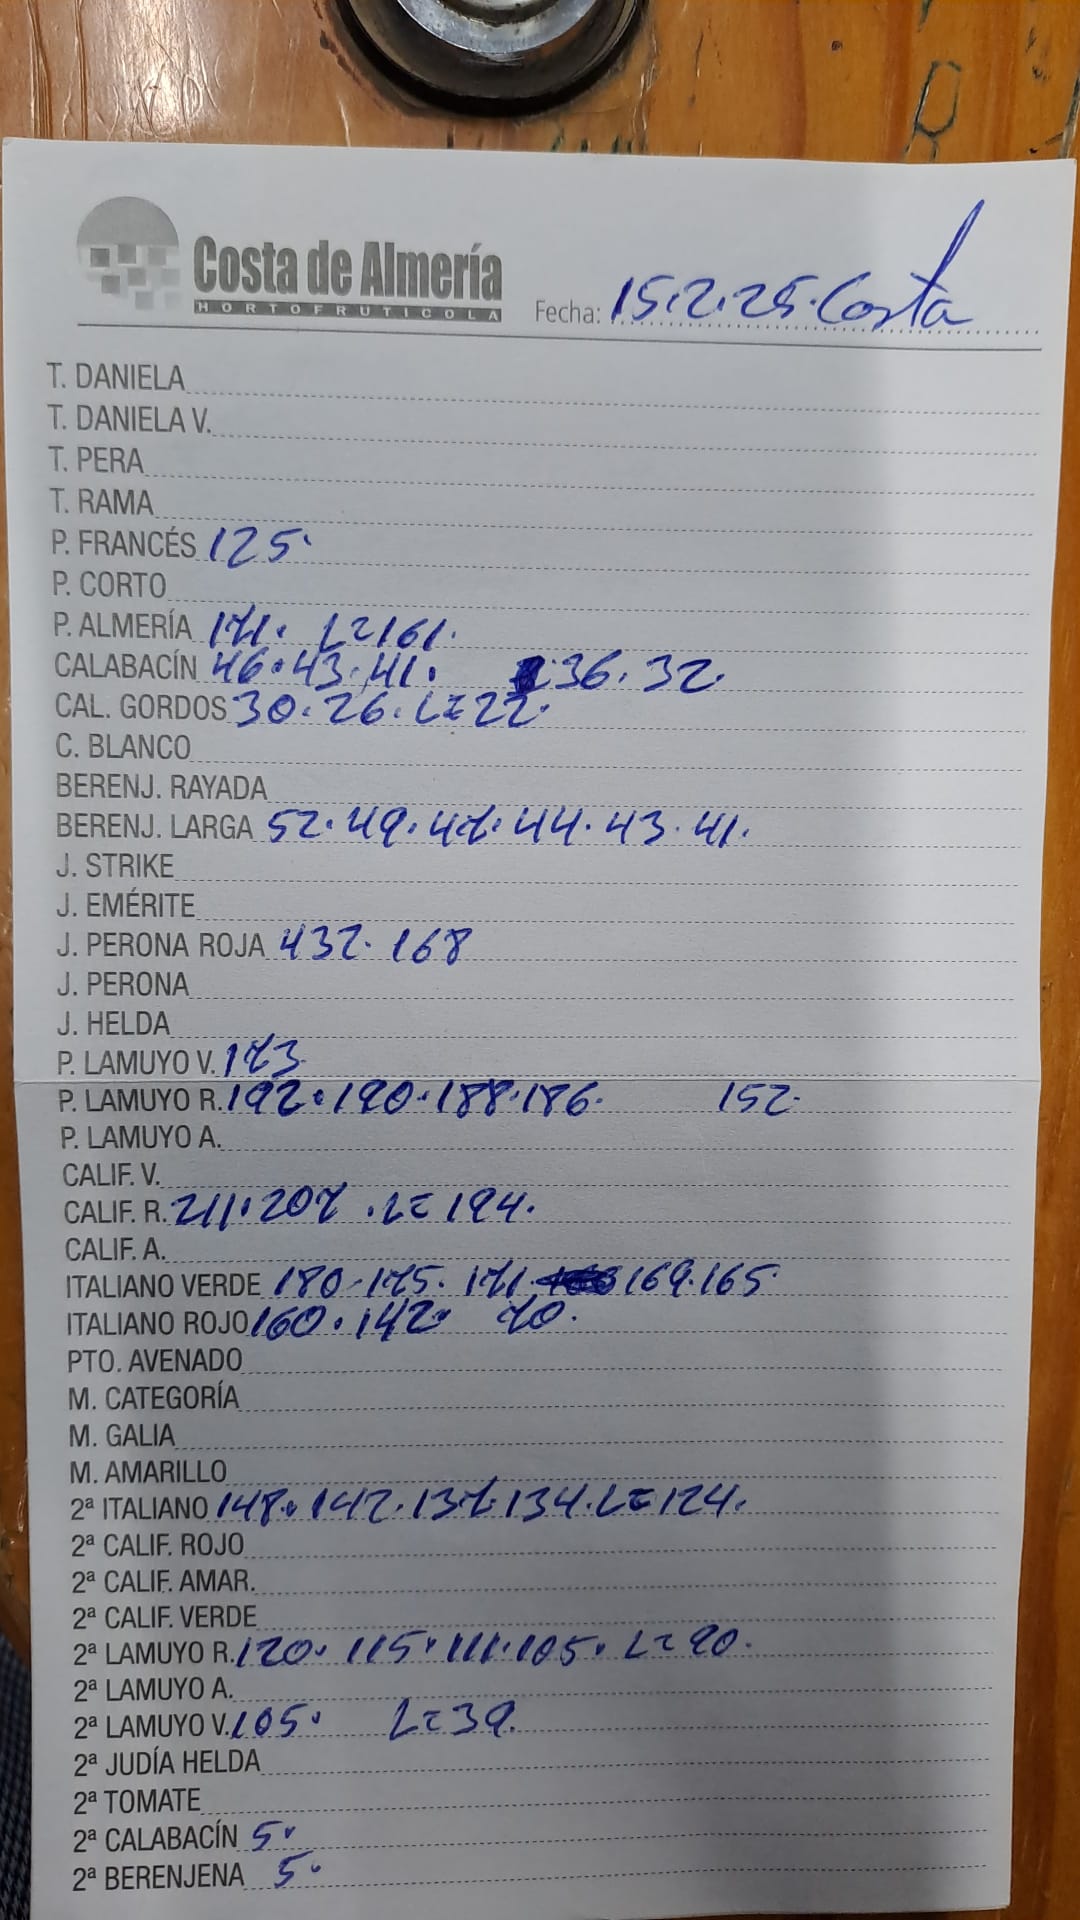 Costa de Almería
HORTOFRUTICOLA
Fecha: 15.2.25. Costa
T. DANIELA
T. DANIELA V.
T. PERA
T. RAMA
P. FRANCÉS 125.
P. CORTO
P. ALMERÍA 171. L=161.
CALABACÍN 46.43.41. 36.32.
CAL. GORDOS 30.26.L=22.
C. BLANCO
BERENJ. RAYADA
BERENJ. LARGA 52.49.47.44.43.41.
J. STRIKE
J. EMÉRITE
J. PERONA ROJA 432. 168
J. PERONA
J. HELDA
P. LAMUYO V. 173
P. LAMUYO R. 192.190.188.186. 152.
P. LAMUYO A.
CALIF. V.
CALIF. R. 211.207 .L=194.
CALIF. A.
ITALIANO VERDE 180.175.171. 169.165.
ITALIANO ROJO 160.142. 70.
PTO. AVENADO
M. CATEGORÍA
M. GALIA
M. AMARILLO
2ª ITALIANO 148.142.137.134.L=124.
2ª CALIF. ROJO
2ª CALIF. AMAR.
2ª CALIF. VERDE
2ª LAMUYO R. 120. 115.111.105. L=90.
2ª LAMUYO A.
2ª LAMUYO V. 105. L=39.
2ª JUDÍA HELDA
2ª TOMATE
2ª CALABACÍN 5.
2ª BERENJENA 5.